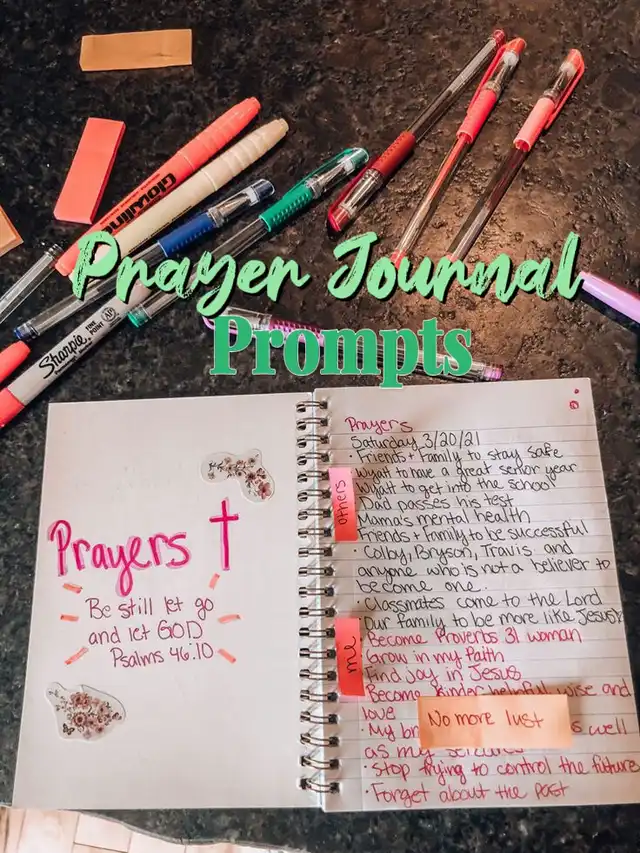 Glowline
Sharpie
FINE
POINT
AP
Prayer Journal
Prompts
Prayers
Be still let go
and let GOD
Psalms 46:10
Prayers
Saturday 3/20/21
· Friends + Family to stay safe
Wyatt to have a great senior year
Wyatt to get into the school
Dad passes his test
Mama's mental health
Friends + Family to be successful
· Colby, Bryson, Travis and
anyone who is not a believer to
become one.
· Classmates come to the Lord
Our family to be more like Jesus
others
me
Become Proverbs 31 woman
Grow in my faith
Find joy in Jesus
Become kinder, helpful, wise and
love
No more lust
· My well
as my seizures
· Stop trying to control the future
· Forget about the past